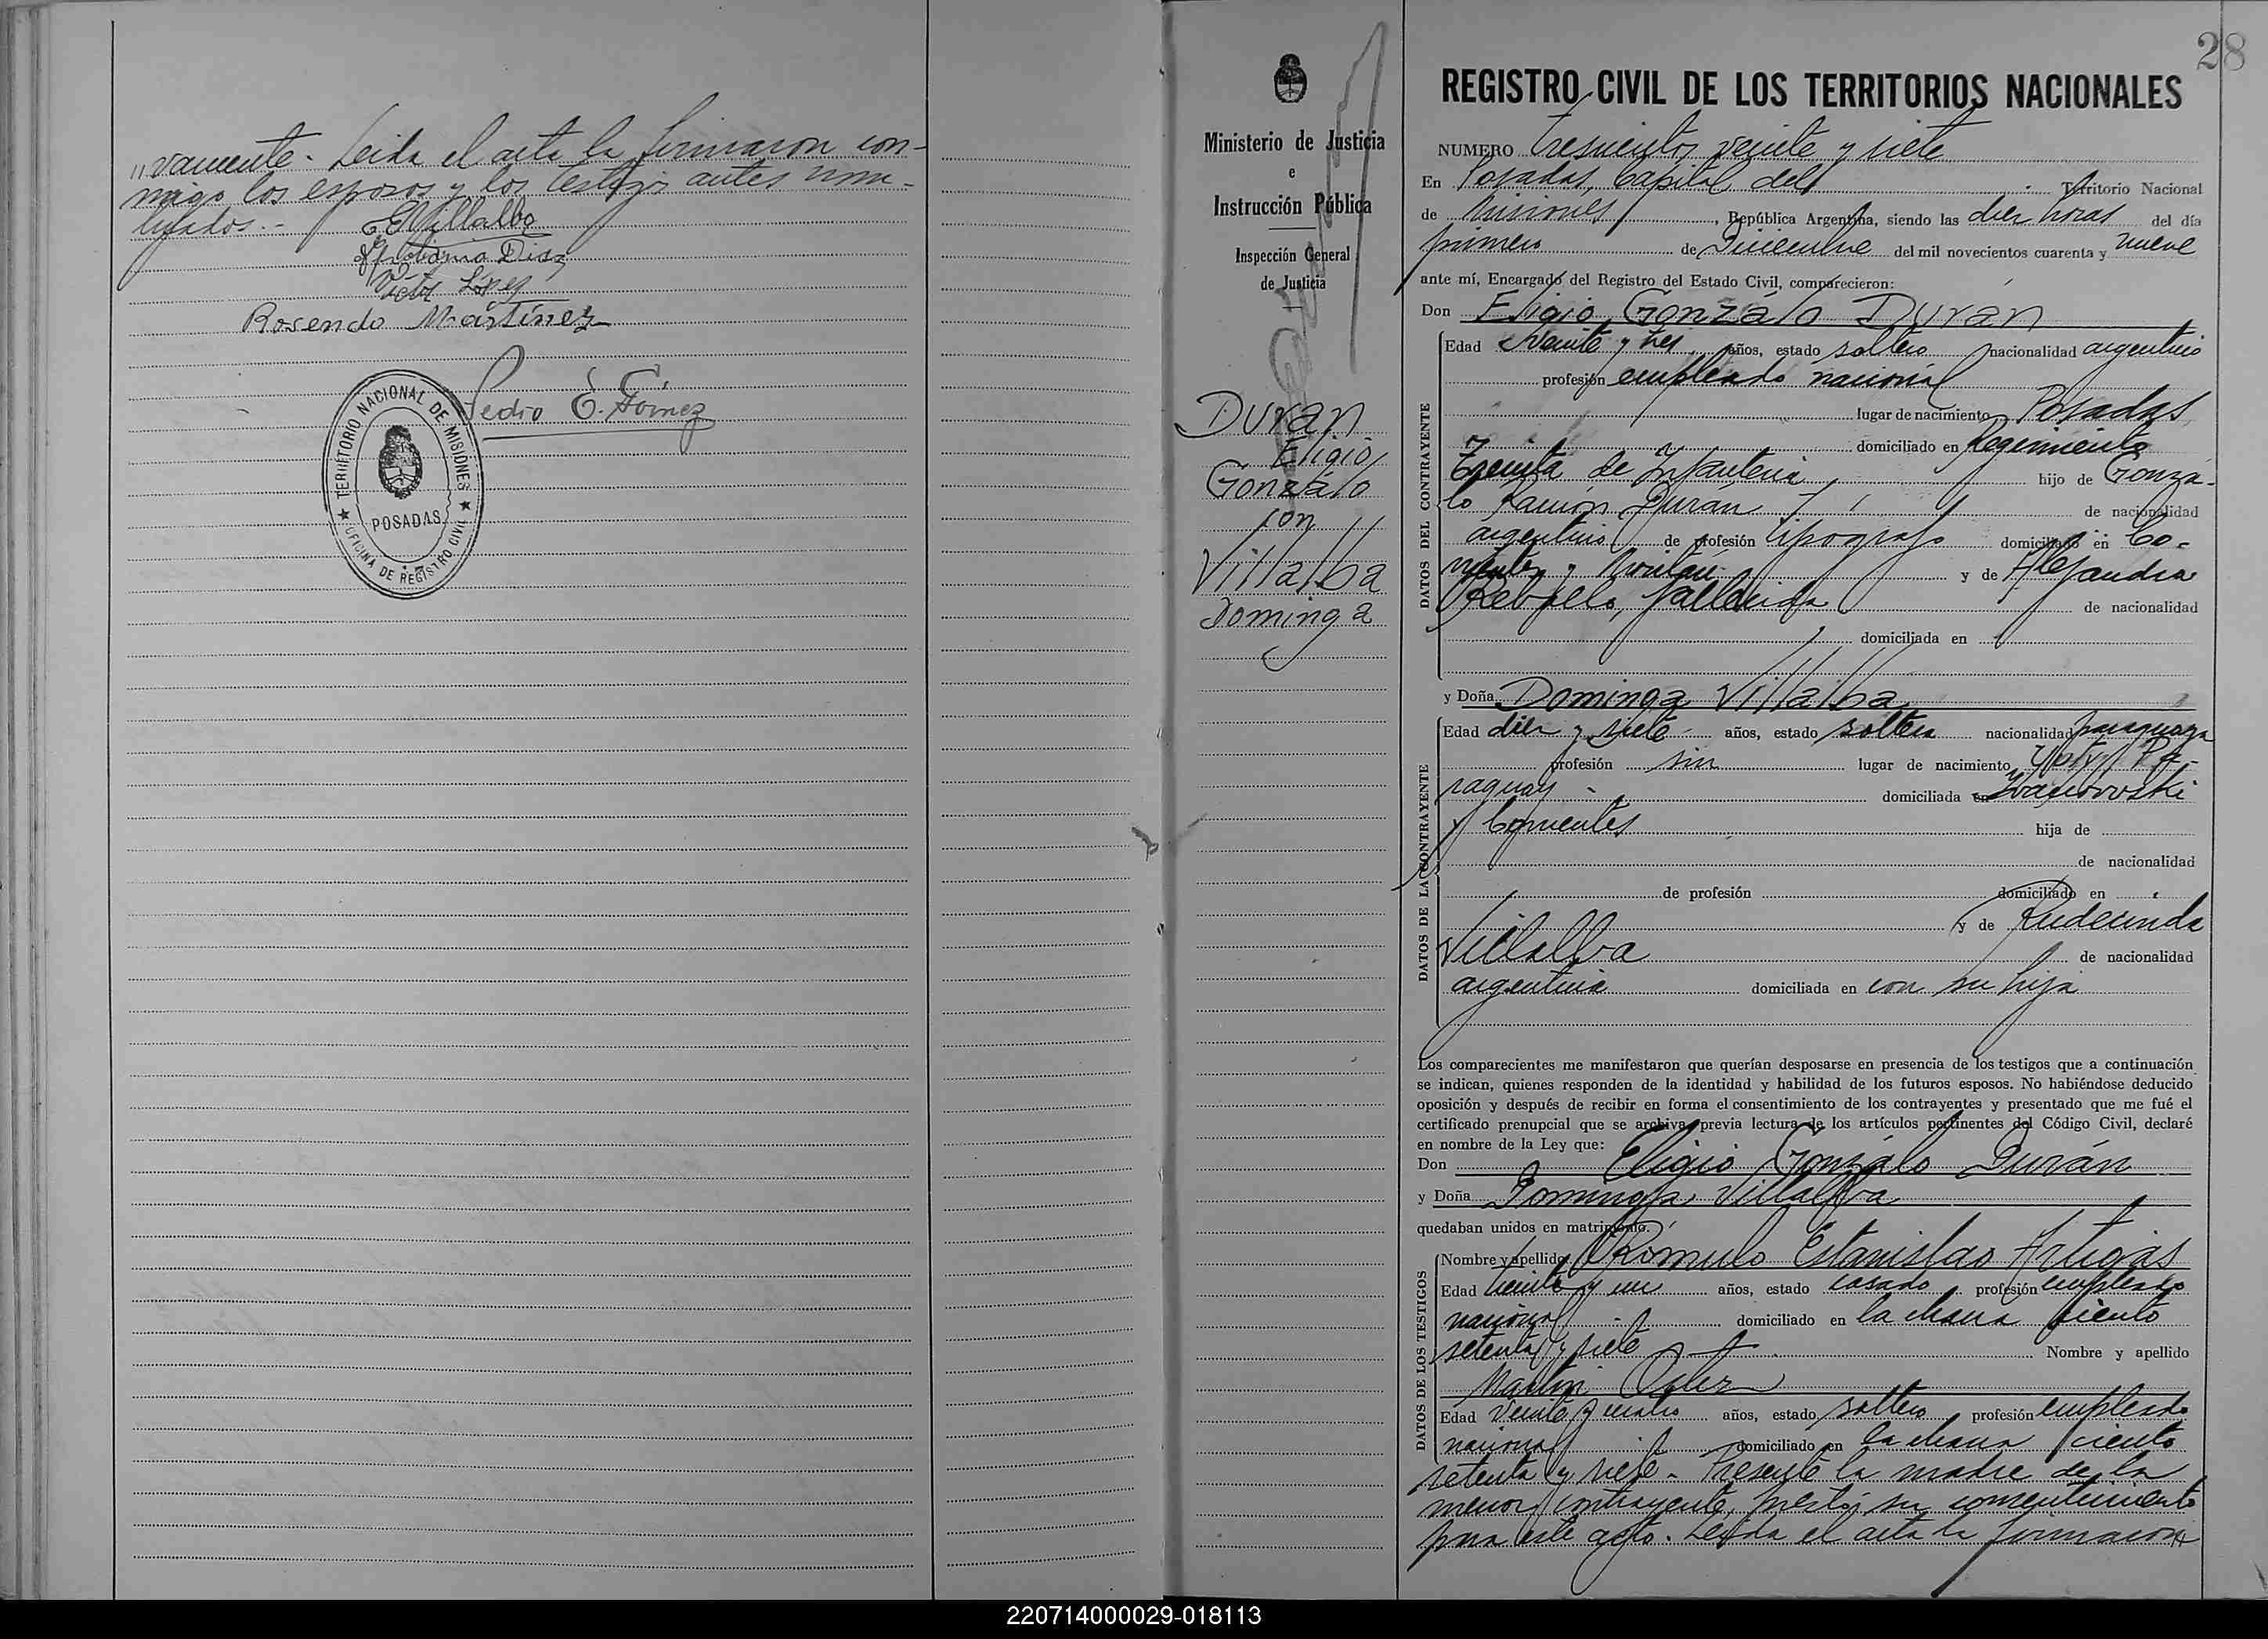 vamente. Leida el acta la firmaron con-
migo los esposos y los testigos antes nom-
brados.-
E Villalba
Díaz
Victor Lopez
Rosendo Martínez
Pedro E. Gómez
TERRITORIO NACIONAL DE MISIONES
POSADAS
OFICINA DE REGISTRO CIVIL
Ministerio de Justicia
e
Instrucción Pública
Inspección General
de Justicia
Durán
Eligio
Gonzálo
con
Villalba
Dominga
28
REGISTRO CIVIL DE LOS TERRITORIOS NACIONALES
NUMERO trescientos veinte y siete
En Posadas, Capital del Territorio Nacional
de Misiones, República Argentina, siendo las diez horas del día
primero de Diciembre del mil novecientos cuarenta y nueve
ante mí, Encargado del Registro del Estado Civil, comparecieron:
Don Eligio Gonzálo Durán
DATOS DEL CONTRAYENTE
Edad veinte y tres años, estado soltero nacionalidad argentino
profesión empleado nacional
lugar de nacimiento Posadas
domiciliado en Regimiento
Treinta de Infantería hijo de Gonzá-
lo Ramón Durán de nacionalidad
argentino de profesión tipografo domiciliado en Co-
rrientes y Roulán y de Alejandra
Rebpelo, fallecida de nacionalidad
domiciliada en
y Doña Dominga Villalba
DATOS DE LA CONTRAYENTE
Edad diez y siete años, estado soltera nacionalidad paraguaya
profesión sin lugar de nacimiento Yatay Pa-
raguay domiciliada en Ivanovski
y Corrientes hija de
de nacionalidad
de profesión domiciliado en
y de Rudecinda
Villalba de nacionalidad
argentina domiciliada en con su hija
Los comparecientes me manifestaron que querían desposarse en presencia de los testigos que a continuación
se indican, quienes responden de la identidad y habilidad de los futuros esposos. No habiéndose deducido
oposición y después de recibir en forma el consentimiento de los contrayentes y presentado que me fué el
certificado prenupcial que se archiva, previa lectura de los artículos pertinentes del Código Civil, declaré
en nombre de la Ley que:
Don Eligio Gonzálo Durán
y Doña Dominga Villalba
quedaban unidos en matrimonio.
DATOS DE LOS TESTIGOS
Nombre y apellido Rómulo Estanislao Artigas
Edad treinta y un años, estado casado profesión empleado
nacional domiciliado en la chacra ciento
setenta y siete Nombre y apellido
Martín
Edad veinte y cuatro años, estado soltero profesión empleado
nacional domiciliado en la chacra ciento
setenta y siete.- Presente la madre de la
menor contrayente, prestó su consentimiento
para este acto. Leida el acta la firmaron
220714000029-018113